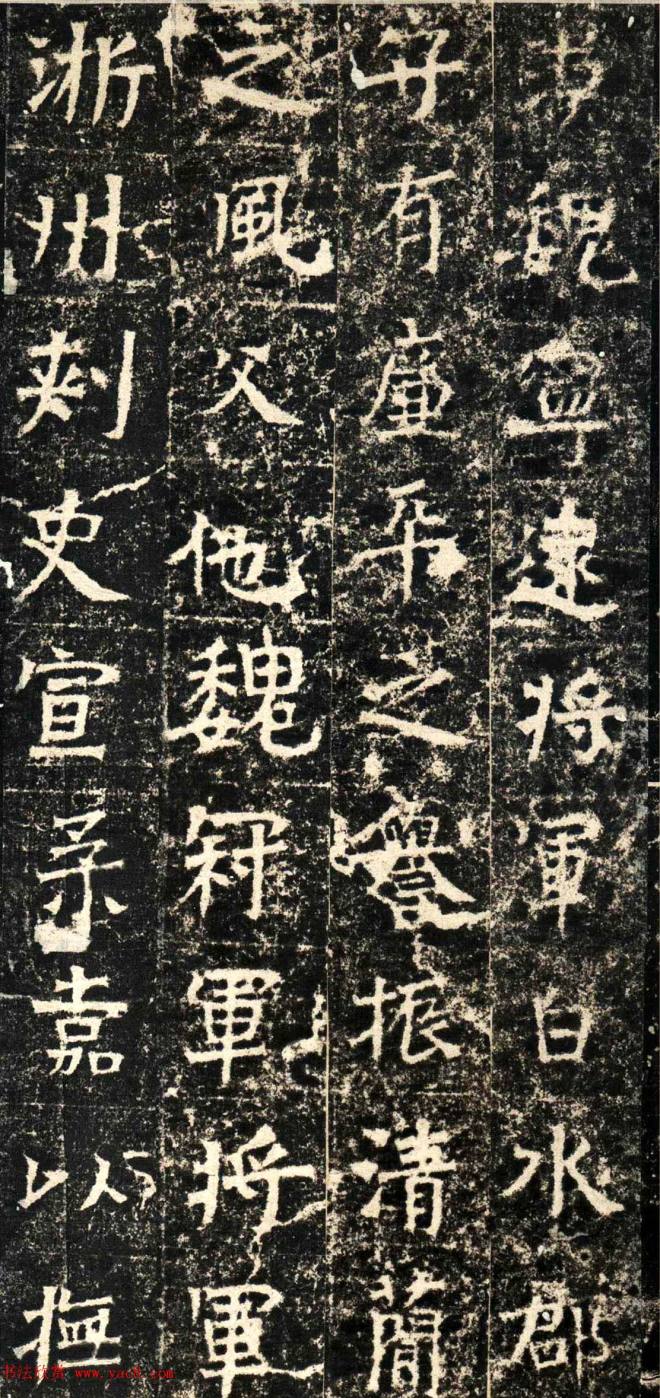 魏寧遠将軍白水郡
守有廉平之譽振清蕳
之風父他魏冠軍將軍
淅州刺史宣柔嘉以撫
书法欣赏 www.yac8.com